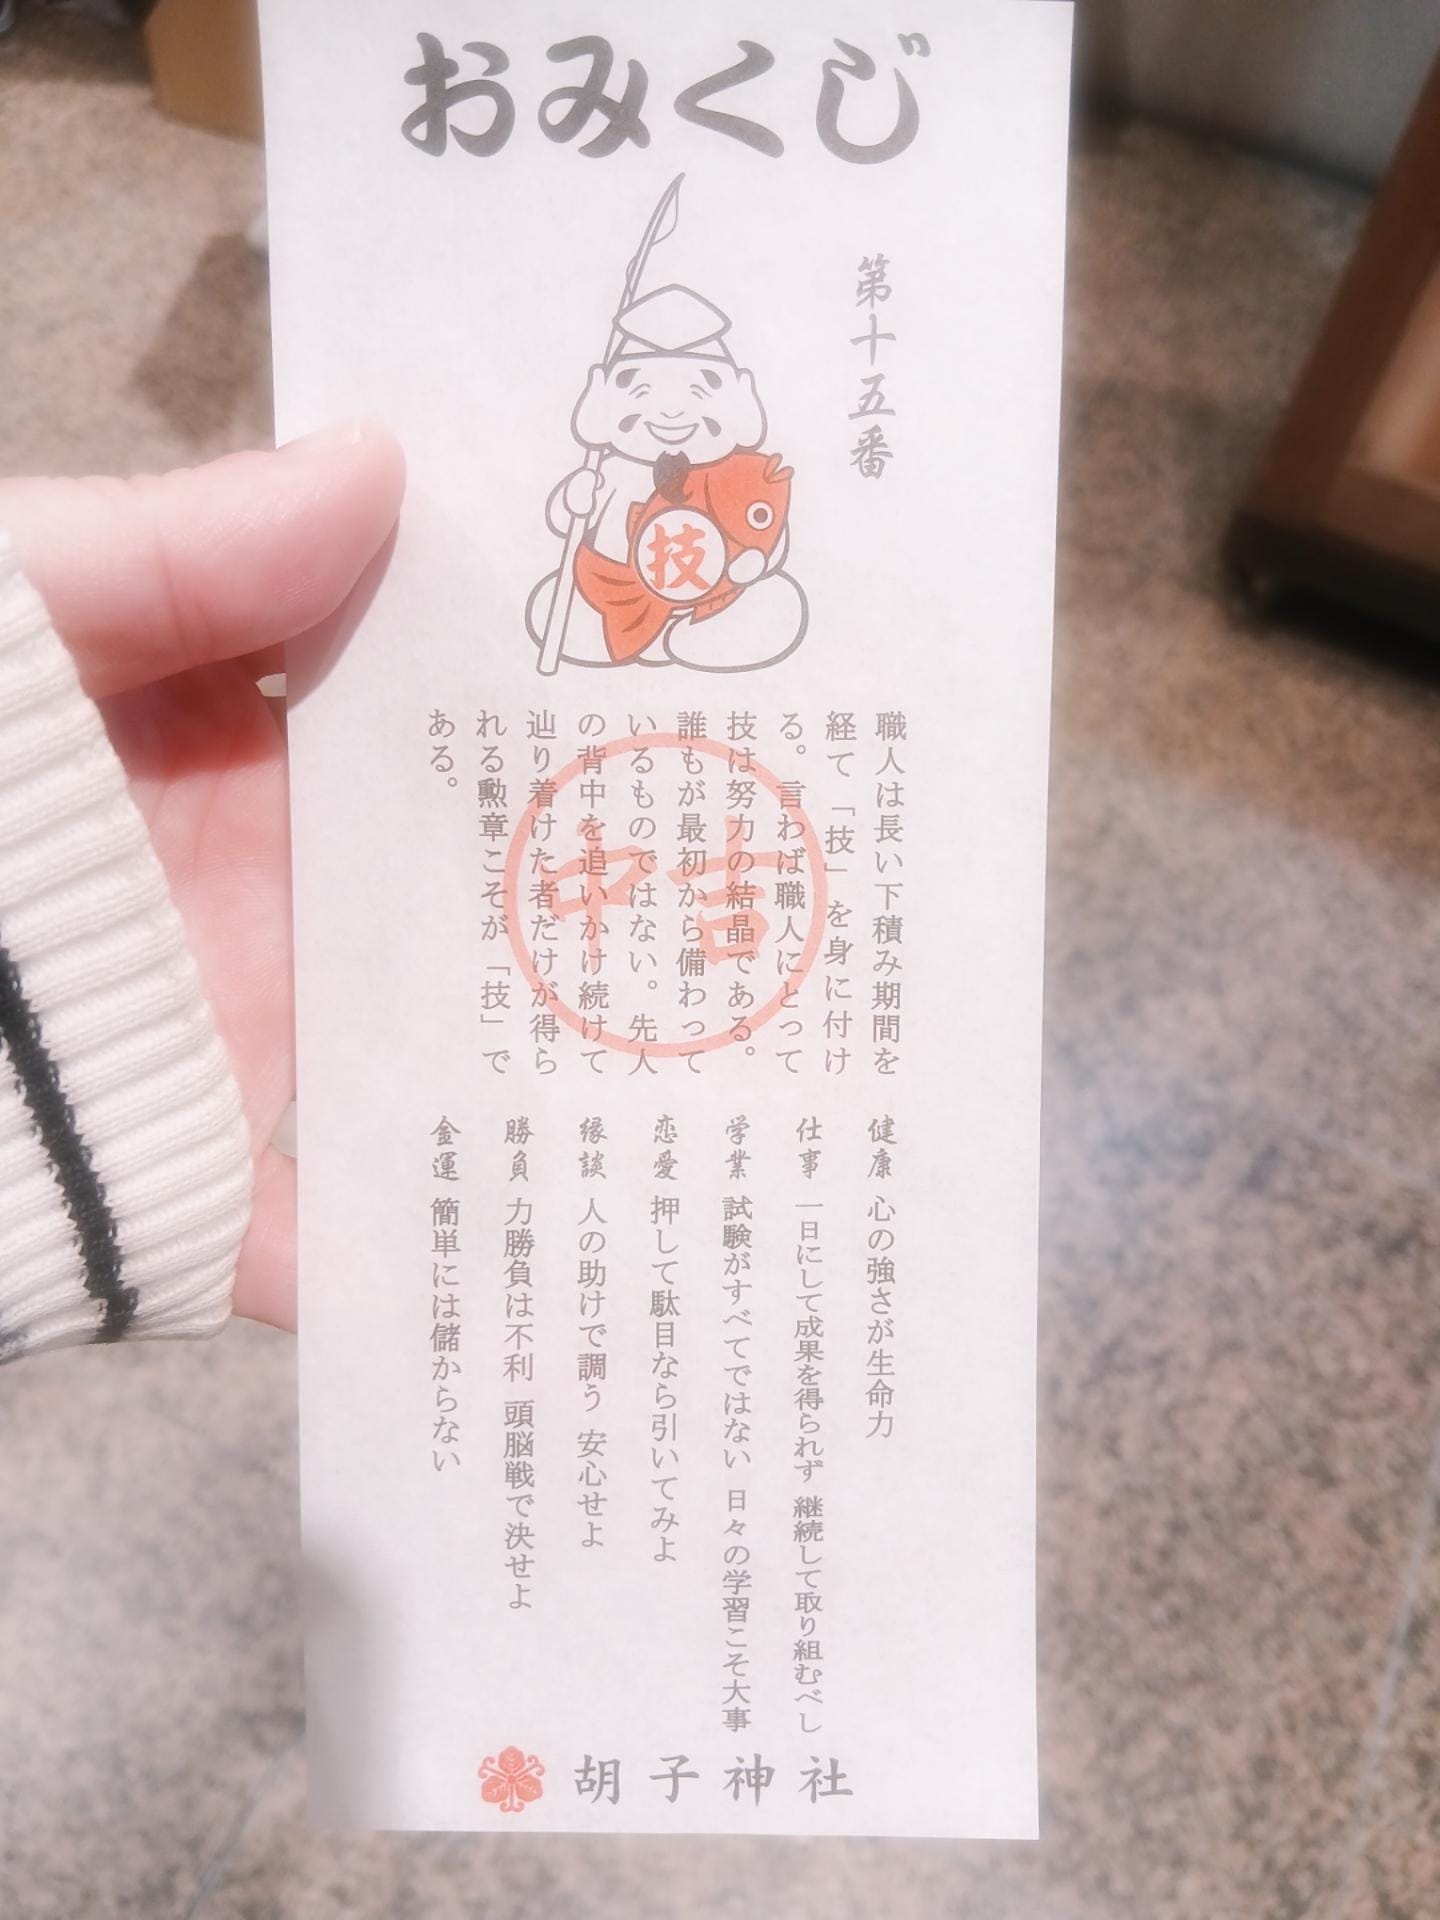 おみくじ
第十五番
技
職人は長い下積み期間を
経て「技」を身に付け
る。言わば職人にとって
技は努力の結晶である。
誰もが最初から備わって
いるものではない。先人
の背中を追いかけ続けて
辿り着けた者だけが得ら
れる勲章こそが「技」で
ある。
中吉
健康 心の強さが生命力
仕事 一日にして成果を得られず 継続して取り組むべし
学業 試験がすべてではない 日々の学習こそ大事
恋愛 押して駄目なら引いてみよ
縁談 人の助けで調う 安心せよ
勝負 力勝負は不利 頭脳戦で決せよ
金運 簡単には儲からない
胡子神社